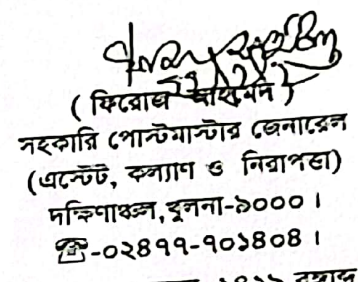 ( ফিরোজ
সহকারি পোস্টমাস্টার জেনারেল
(এস্টেট, কল্যাণ ও নিরাপত্তা)
দক্ষিণাঞ্চল, খুলনা-৯০০০ ।
☎-০২৪৭৭-৭০১৪০৪ ।